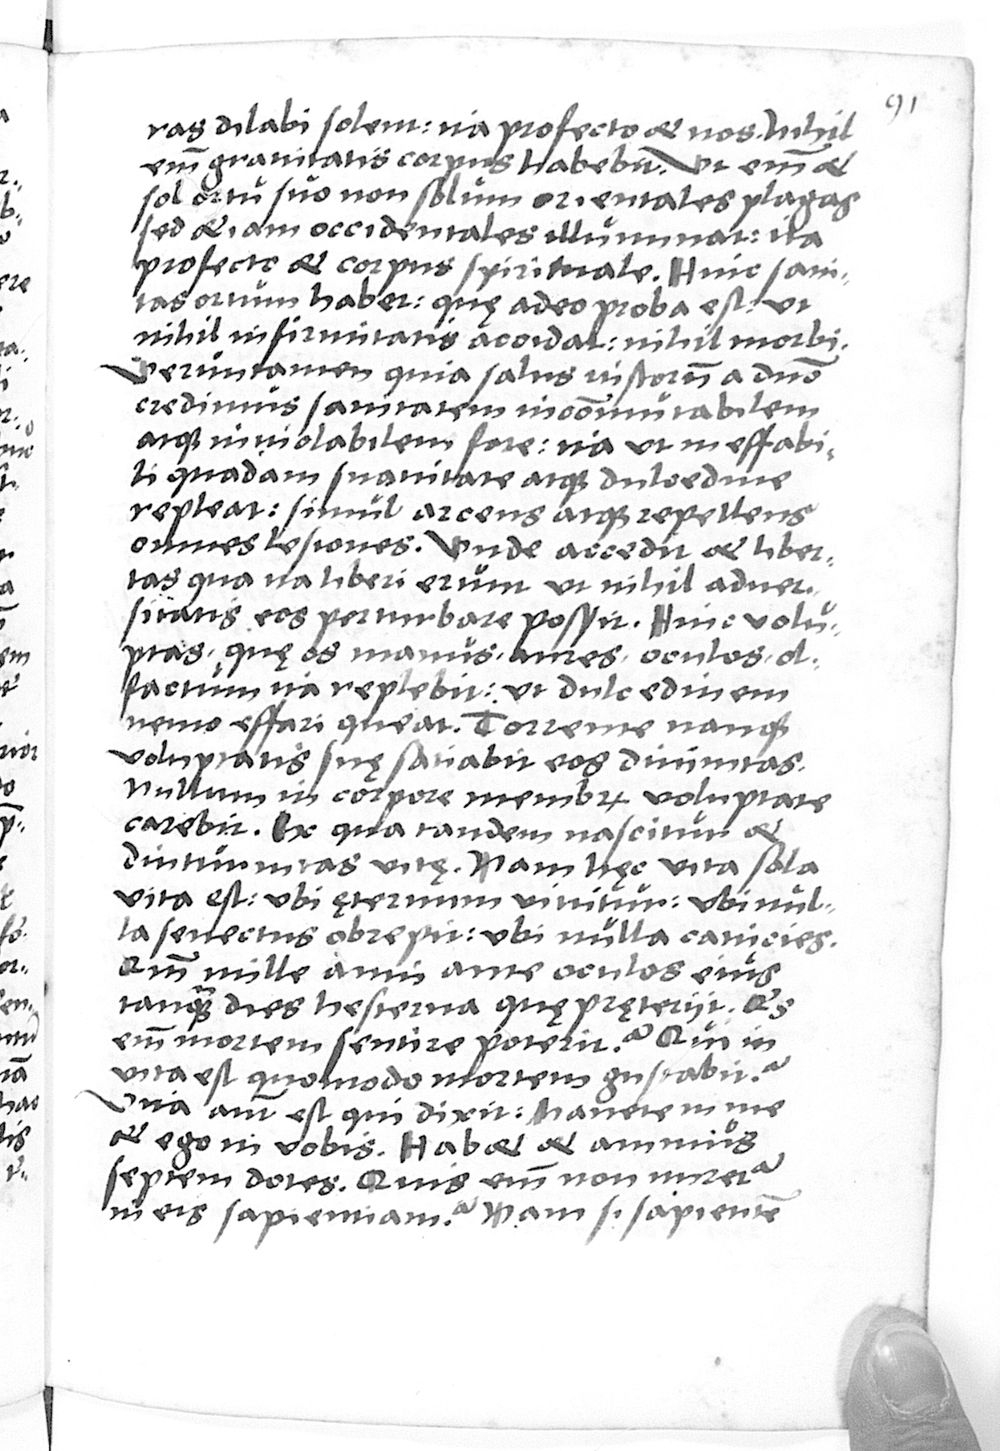 91
ras dilabi solent: ita profecto & nos. Nihil
em̄ grauitatis corpus habebit. Vt em̄ &
sol ortu suo non solum orientales plagas
sed & iam occidentales illuminat: ita
profecto & corpus spirituale. Hinc sani-
tas ortum habet: quę adeo proba est: vt
nihil infirmitatis accidat: nihil morbi.
Veruntamen quia salus iustorū a dn̄o
credimus sanitatem incōmutabilem
atq; inuiolabilem fore: ita vt ineffabi-
li quadam suauitate atq; dulcedine
repleat: simul arcens atq; repellens
omnes lesiones. Vnde accedit & liber-
tas qua ita liberi erunt vt nihil aduer-
sitatis eos perturbare possit. Hinc volu-
ptas, quę os manus, aures, oculos, ol-
factum ita replebit: vt dulcedinem
nemo effari queat. Torrente nanq;
voluptatis suę satiabit eos diuinitas.
Nullum in corpore membrū voluptate
carebit. Ex qua tandem nascitur &
diuturnitas vitę. Nam hęc vita sola
vita est: vbi ęternum viuitur: vbi nul-
la senectus obrepit: vbi nulla canicies.
Qm̄ mille anni ante oculos eius
tanq̄ dies hesterna quę pręterijt. Qs
em̄ mortem sentire poterit? Qui in
vita est quomodo mortem gustabit?
Vita aut̄ est qui dixit: Manete in me
& ego in vobis. Hab& & animus
septem dotes. Quis em̄ non miret
in eis sapientiam? Nam si sapientē